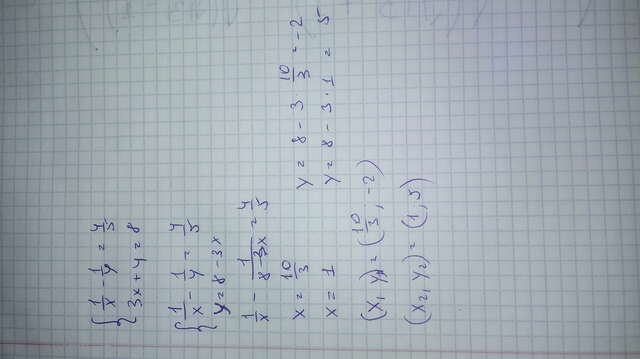 { 1/x - 1/y = 4/5
3x + y = 8
{ 1/x - 1/y = 4/5
y = 8 - 3x
1/x - 1/(8 - 3x) = 4/5
x = 10/3 y = 8 - 3 · 10/3 = -2
x = 1 y = 8 - 3 · 1 = 5
(x, y₁) = (10/3, -2)
(x₂, y₂) = (1, 5)